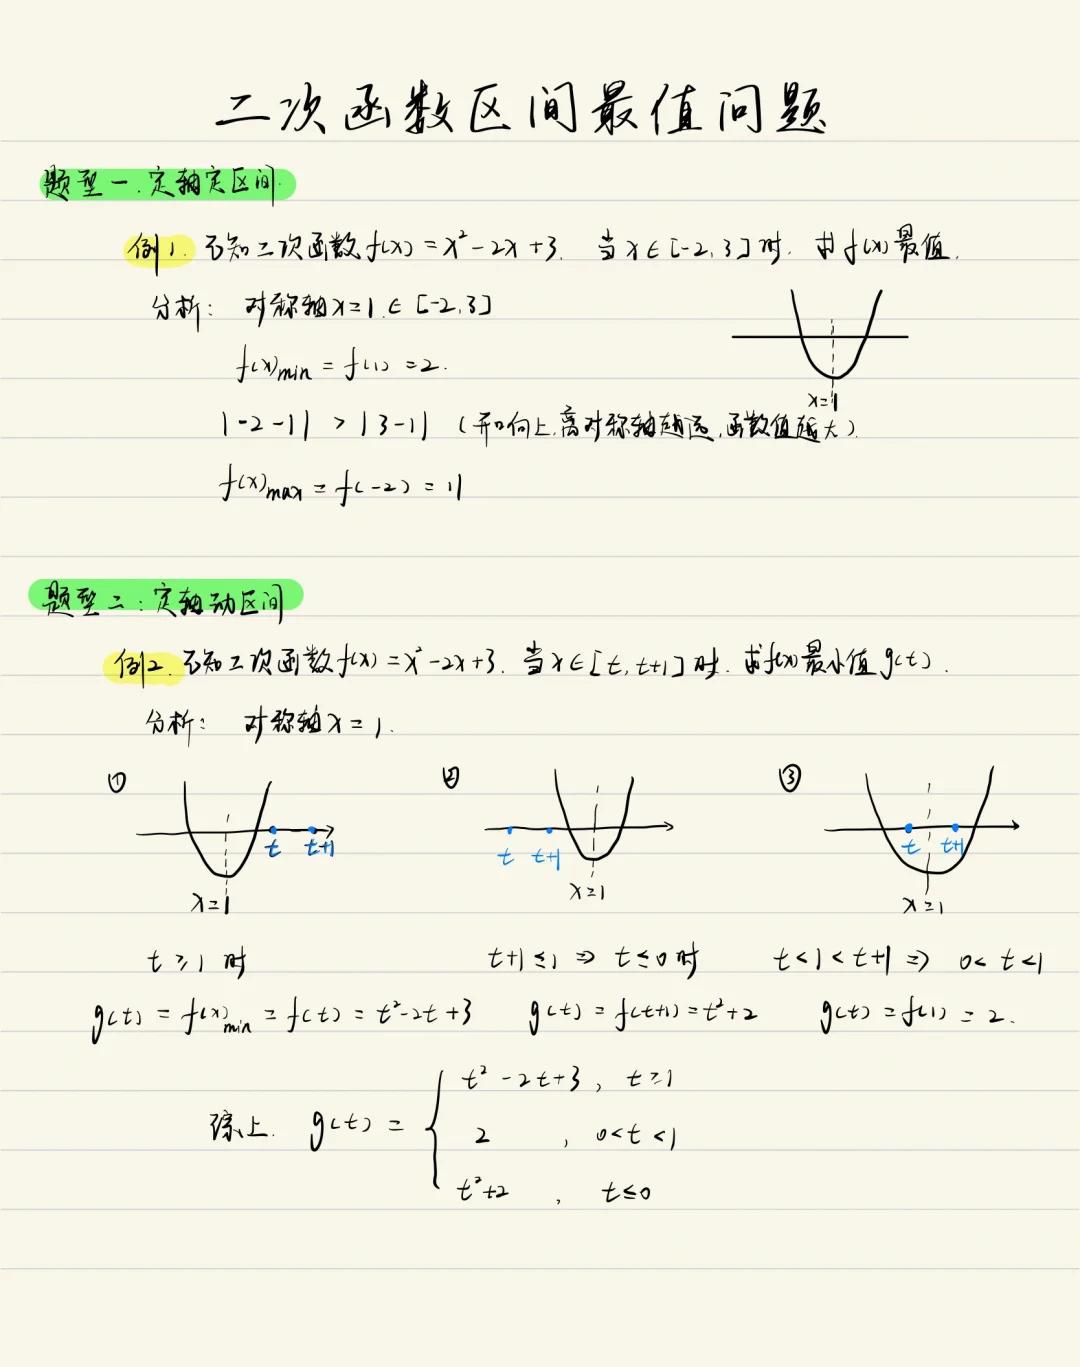 二次函数区间最值问题
题型一.定轴定区间.
例1. 已知二次函数f(x)=x²-2x+3. 当x∈[-2,3]时. 求f(x)最值.
分析: 对称轴x=1∈[-2,3]
f(x)min=f(1)=2.
x=1
|-2-1|>|3-1| (开口向上,离对称轴越远,函数值越大).
f(x)max=f(-2)=11
题型二:定轴动区间
例2.已知二次函数f(x)=x²-2x+3. 当x∈[t,t+1]时. 求f(x)最小值g(t).
分析: 对称轴x=1.
① ② ③
t t+1 t t+1 t t+1
x=1 x=1 x=1
t≥1时 t+1≤1⇒t≤0时 t<1<t+1⇒0<t<1
g(t)=f(x)min=f(t)=t²-2t+3 g(t)=f(t+1)=t²+2 g(t)=f(1)=2.
t²-2t+3, t≥1
综上. g(t)={ 2 , 0<t<1
t²+2 , t≤0